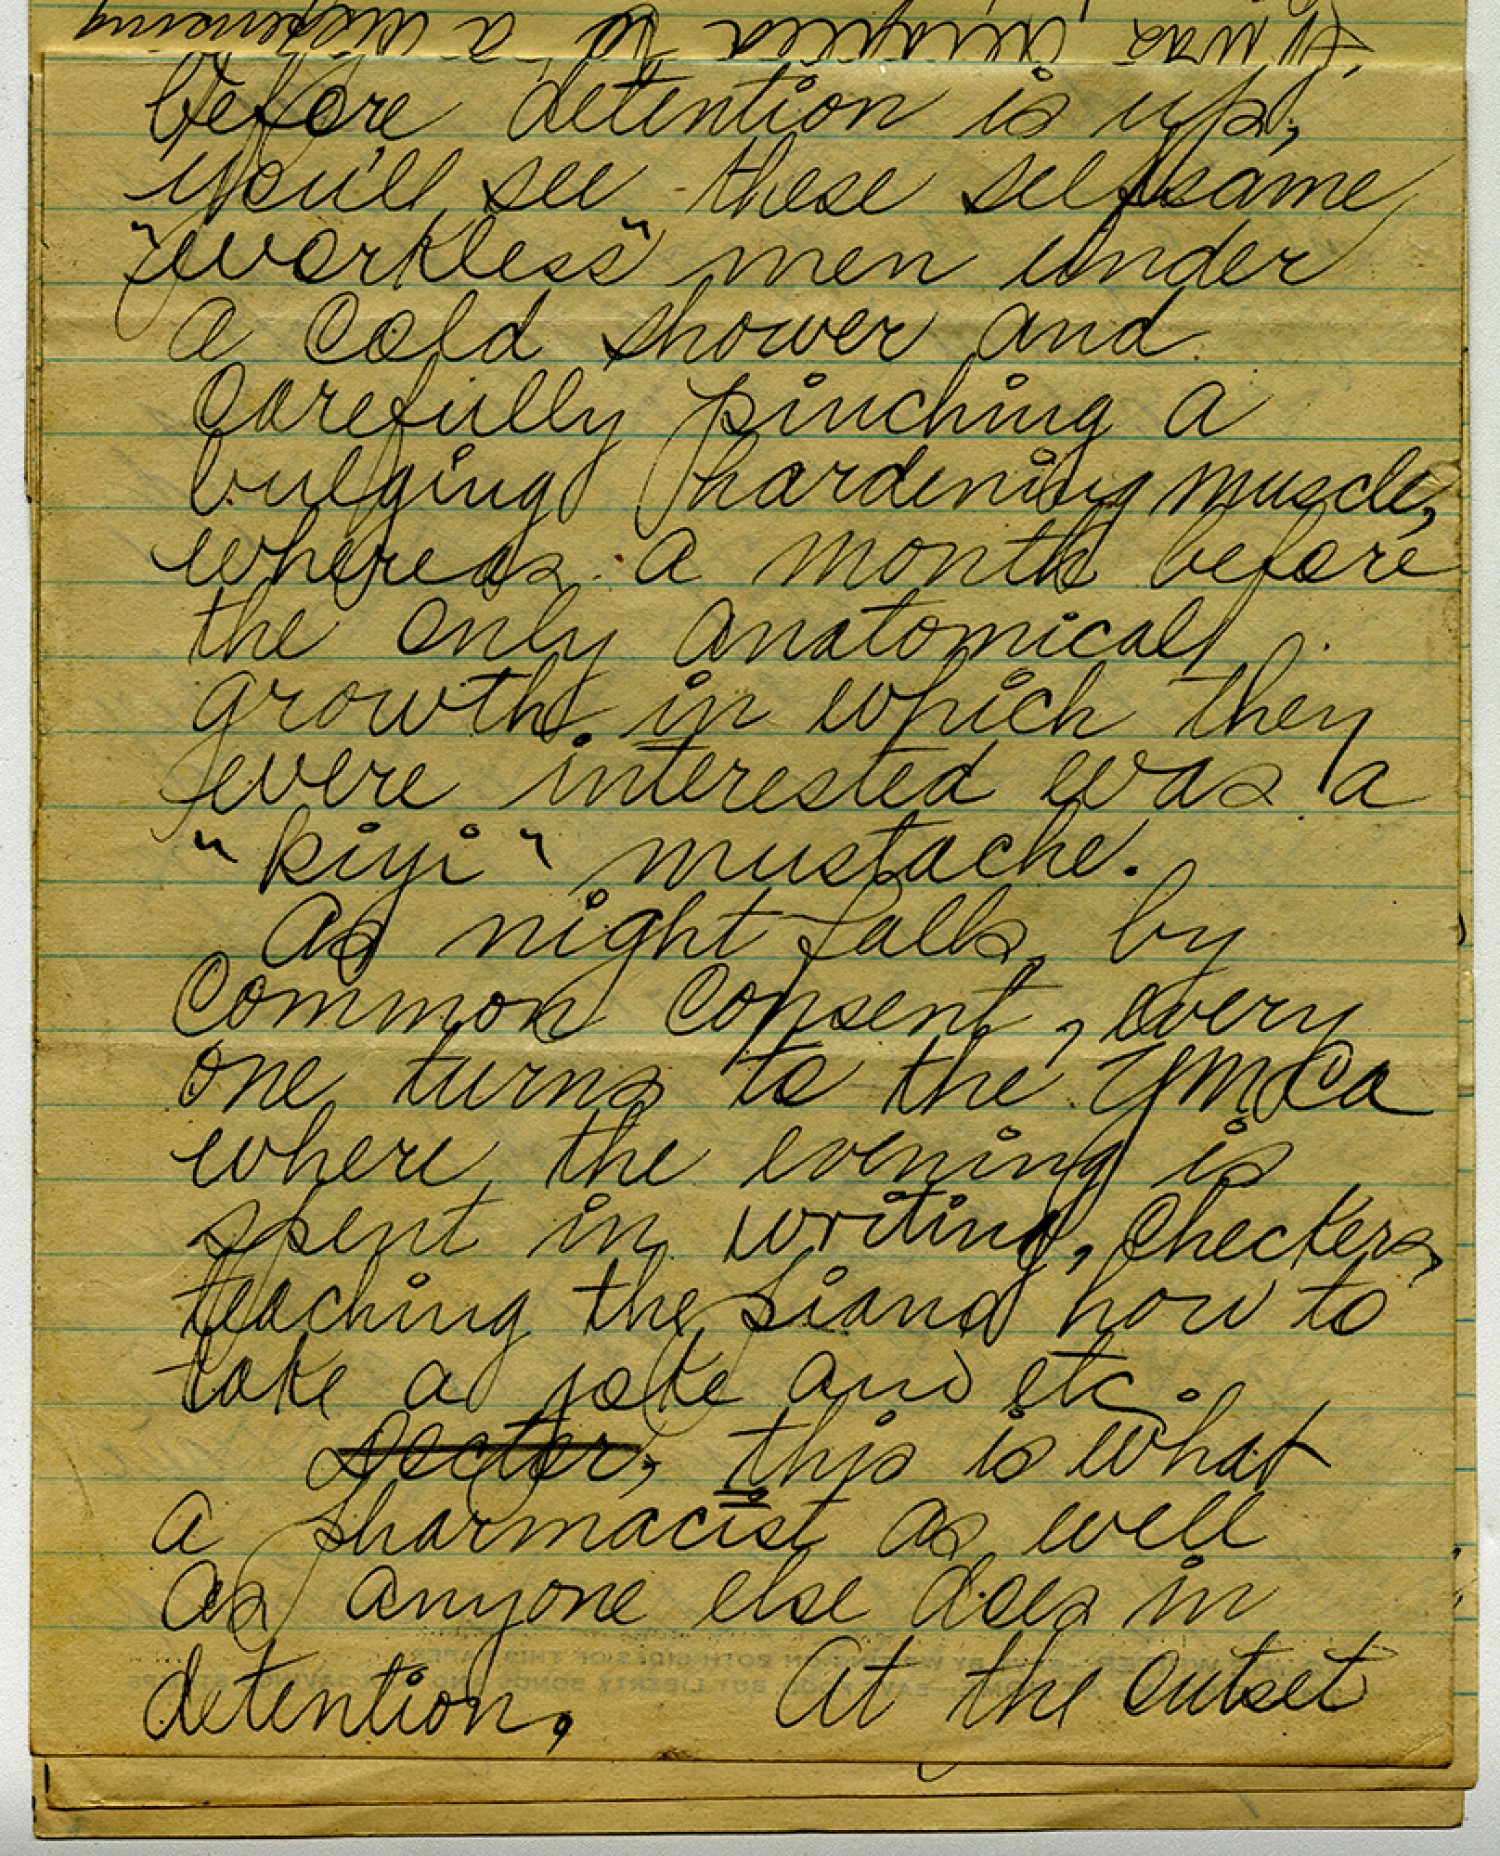 before detention is up,
you'll see these selfsame
"workless" men under
a cold shower and
carefully pinching a
bulging hardening muscle,
whereas a month before
the only anatomical
growth in which they
were interested was a
"kiyi" mustache.
As night falls, by
common consent, every
one turns to the YMCA
where the evening is
spent in writing, checkers,
teaching the piano how to
take a joke and etc.
this is what
a pharmacist as well
as anyone else does in
detention. At the outset